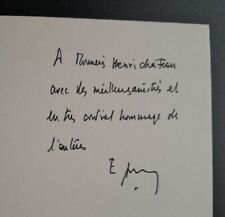 A Monsieur Henri Chateau
avec des meilleures amitiés et
un très cordial hommage de
l'auteur
E